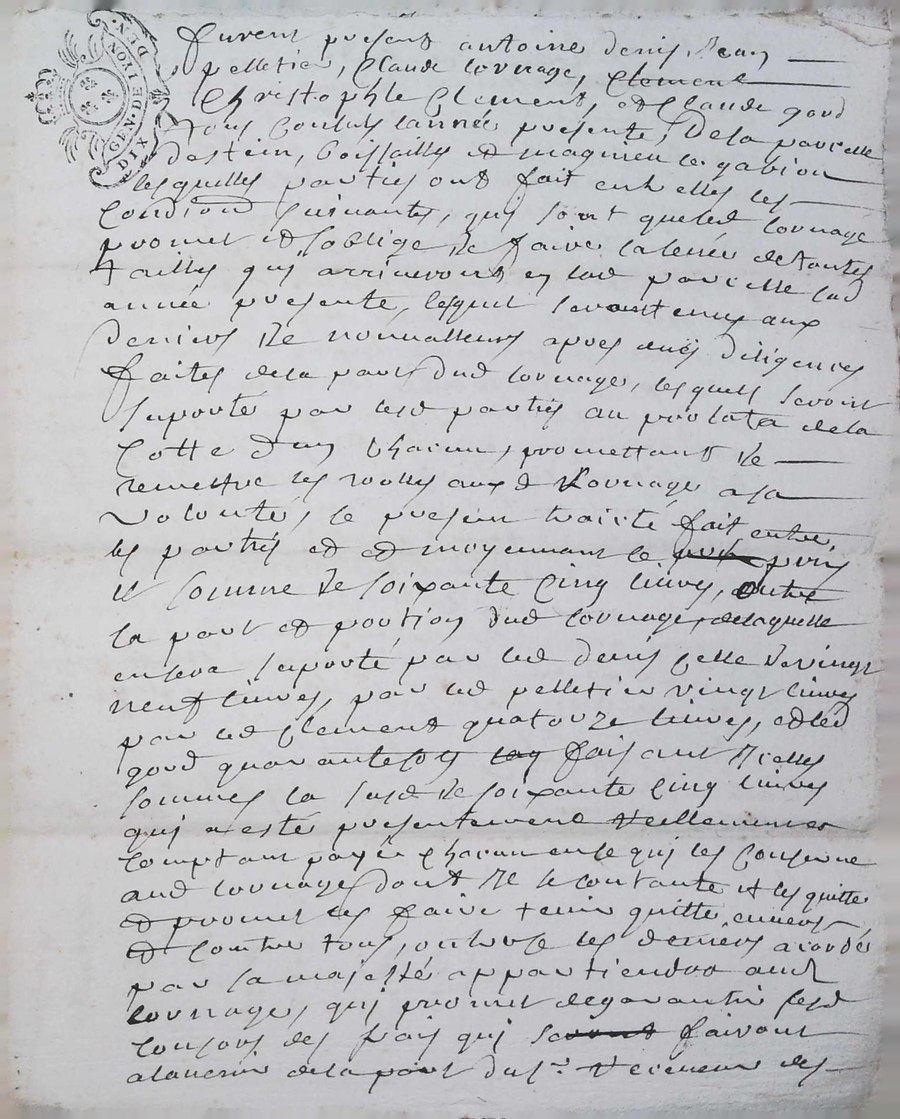 GEN DE DIJON
DIX DE.V.
furent present antoine denis, Jean
pelletier, Claude Cornage, Clement
Christophle Clement, et Claude gord
tous Consuls lannée presente, de la parcelle
destein, boissailles et magnien le gabion
lesquelles parties ont fait entrelles les
Condions suivantes, qui sont queled Cornage
promet et soblige de faire la levée de toutes
tailles qui arriveront en lad parcelle lad
année presente, lesquels seront tenus aux
deniers de nonvalleurs apres dües diligences
faites de la part dud Cornage, lesquels seront
suporté par lesd parties au prolata de la
Cotte dun Chacun, promettant de
remettre les rolles aud Cornage a sa
volonté, le present traicté fait entre
les parties et moyennant le prix
et somme de soixante Cinq livres, outre
la part et portion dud Cornage, de laquelle
en sera suporté par led denis Celle de vingt
neuf livres, par led pelletier vingt livres
par led Clement quatorze livres, et led
gord quarante sols faisant Icelles
sommes la susd de soixante Cinq livres
qui a esté presentement reellement
Comptant payée Chacun en ce qui les Conserne
aud Cornage, dont Il se Contante et les quitte
et promet les faire tenir quitte envers
et Contre tous, outre ce les deniers acordés
par sa majesté appartiendra aud
Cornage, qui promet de garantir lesd
Consors des frais qui fairont
a lavenir de la part du Sr. receveur des